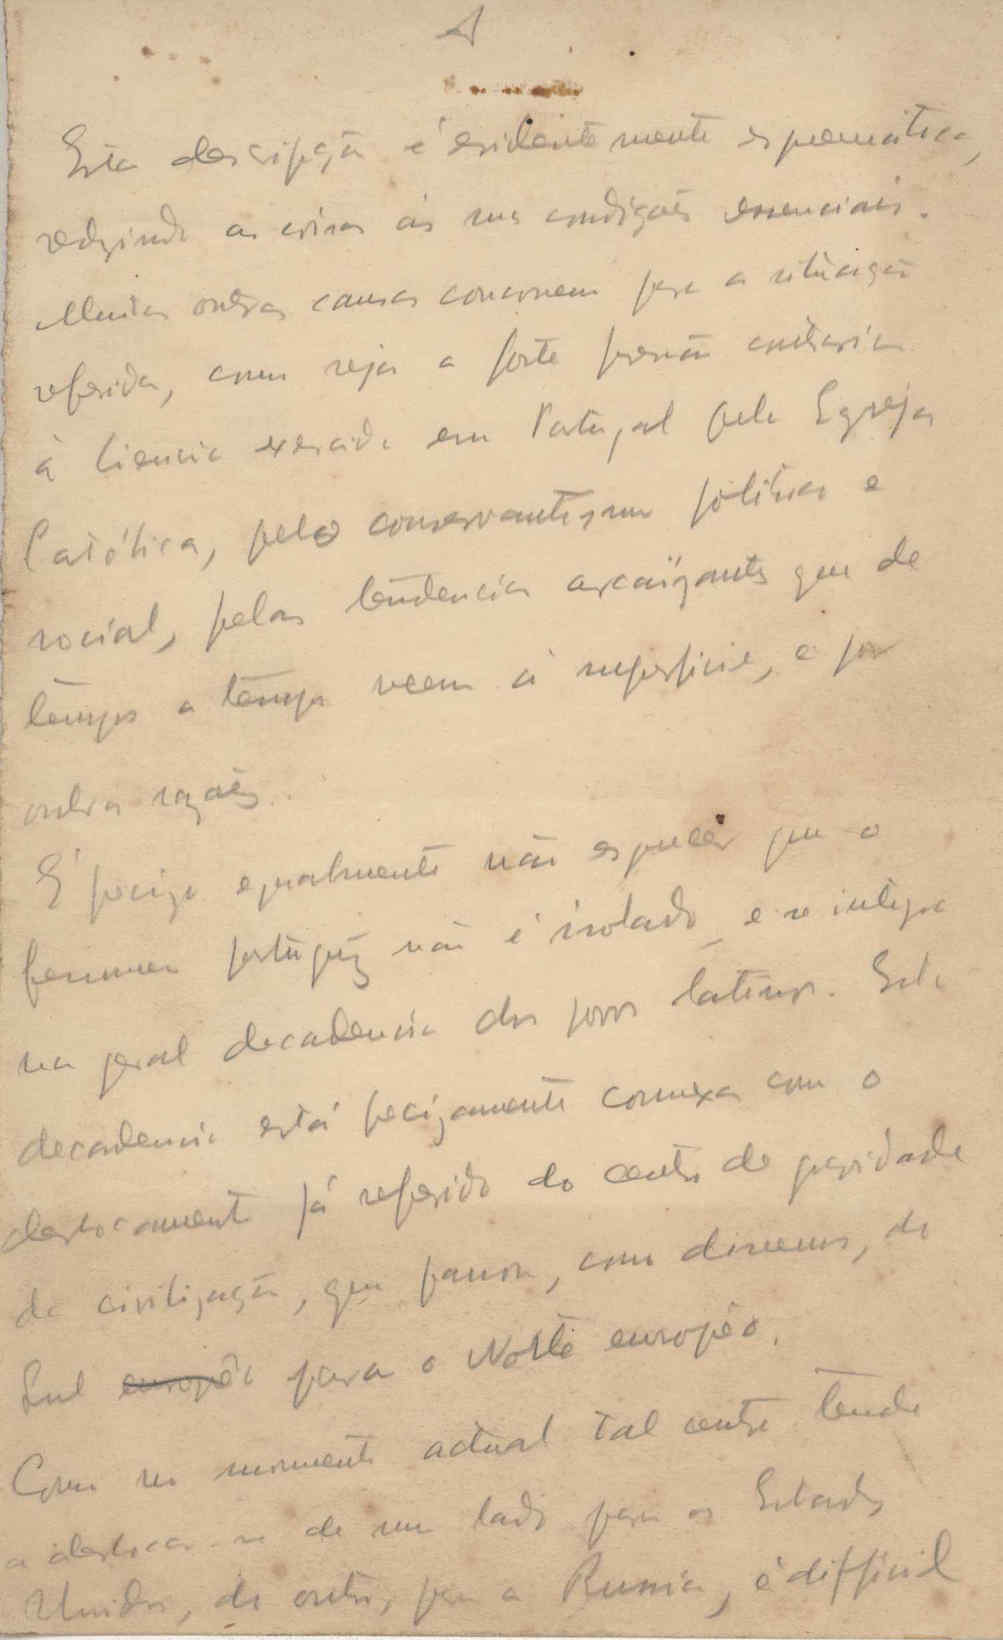 Esta descripção é evidentemente esquemática,
reduzindo as coisas ás suas condições essenciais.
Muitas outras causas concorrem para a situação
referida, como seja a forte pressão contraria
à ciencia exercida em Portugal pela Egreja
Católica, pelo conservantismo politico e
social, pelas tendencias arcaïzantes que de
tempos a tempos veem á superficie, e por
outras razões.
É precizo egualmente não esquecer que o
fenomeno português não é isolado e se integra
na geral decadencia dos povos latinos. Esta
decadencia está precizamente connexa com o
deslocamento já referido do centro de gravidade
da civilização, que passou, como dissemos, do
Sul europêo para o Norte européo.
Como no momento actual tal centro tende
a deslocar-se de um lado para os Estados
Unidos, de outro, para a Russia, é difficil